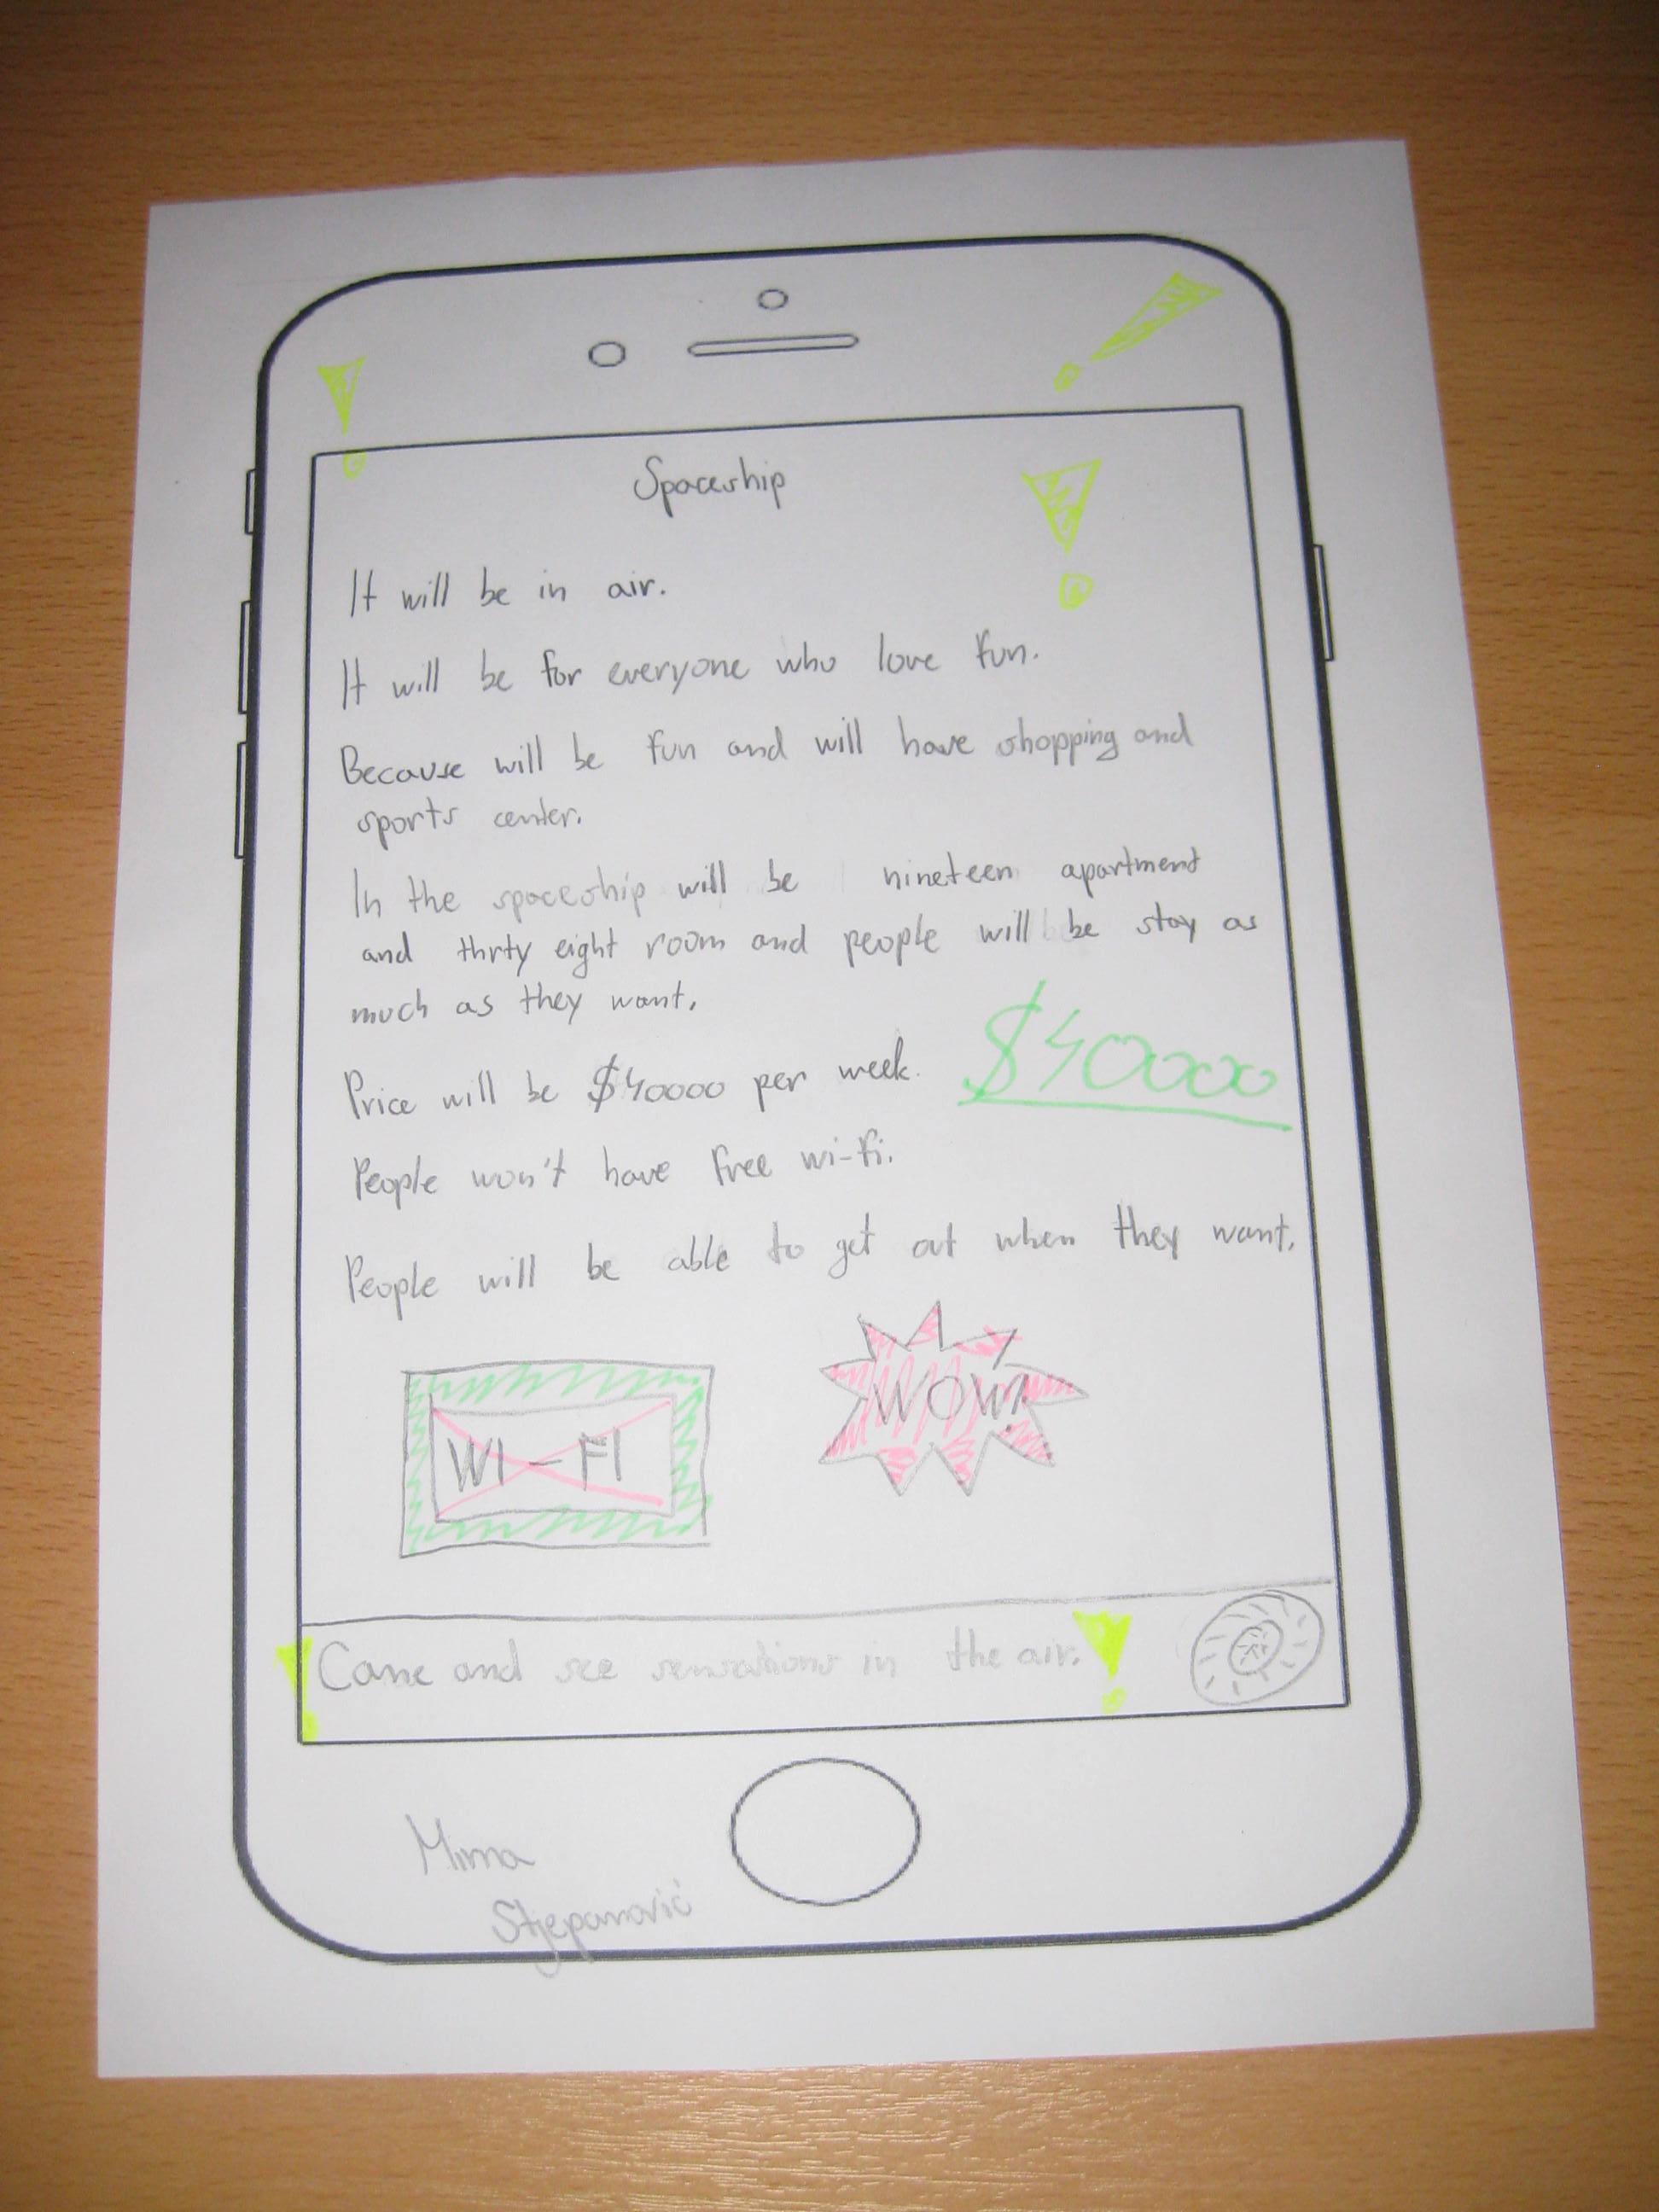 Spaceship
It will be in air.
It will be for everyone who love fun.
Because will be fun and will have shopping and
sports center.
In the spaceship will be nineteen apartment
and thrty eight room and people will be stay as
much as they want.
Price will be $40000 per week.
$40000
People won't have free wi-fi.
People will be able to get out when they want.
WI-FI
WOW!
Come and see sensations in the air.
Mirna
Stjepanović